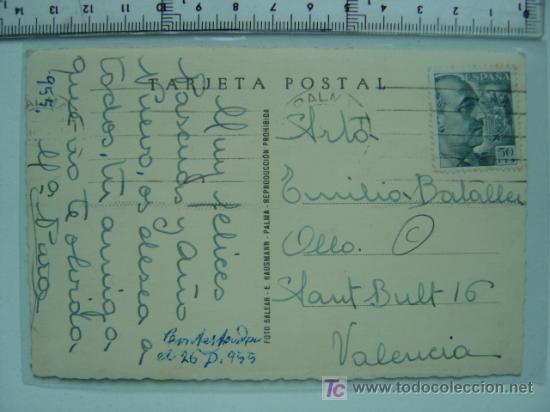 14 13 12 11 10 9 8 7 6 5 4 3 2 1 0
TARJETA POSTAL
PALMA
ESPAÑA
50
CTS
Muy felices
Pascuas y Año
Nuevo, os desea a
todos, tu amiga
que no te olvida
Mª
1955,
Srta
Emilia Bataller
C
Sant Bult 16
Valencia
el 26 D. 955
FOTO BALEAR - E. HAUSMANN - PALMA - REPRODUCCIÓN PROHIBIDA
todocoleccion
http://www.todocoleccion.net